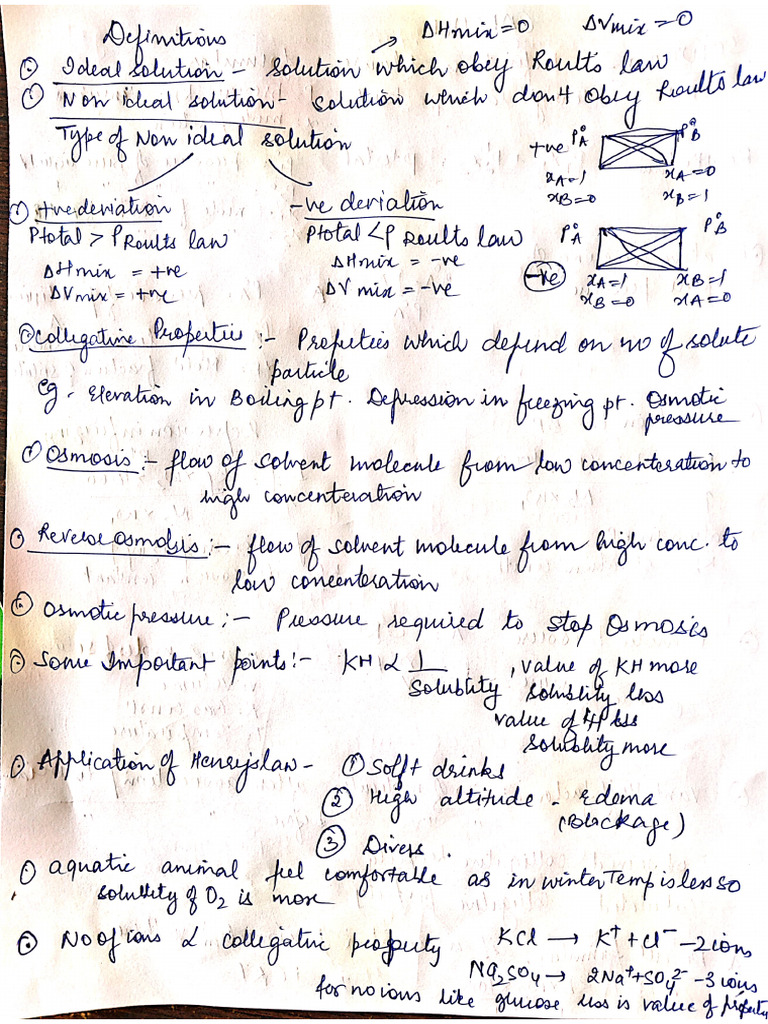 Definitions → ΔHmix=0 ΔVmix=0
Ideal solution - solution which obey Roults law
Non ideal solution- solution which don't obey Roults law
Type of Non ideal solution
+ve P°A P°B
xA=1 xA=0
xB=0 xB=1
① +ve deviation -ve deviation
Ptotal > P Roults law Ptotal < P Roults law
ΔHmix = +ve ΔHmix = -ve
ΔVmix = +ve ΔV mix = -ve
P°A P°B
-ve xA=1 xB=1
xB=0 xA=0
Collegative Properties :- Properties which depend on no of solute
particle
eg - Elevation in Boiling pt. Depression in freezing pt. Osmotic
pressure
Osmosis :- flow of solvent molecule from low concenteration to
high concenteration
Reverse Osmosis :- flow of solvent molecule from high conc. to
low conceenteration
Osmotic pressure :- Pressure required to stop Osmosis
Some Important points :- KH α 1/Solublity , value of KH more
solublity less
value of KH less
Solublity more
Application of Henryslaw - ① Soft drinks
② High altitude - Edema
(Blackage)
③ Divers.
aquatic animal feel comfortable as in winter Temp is less so
solublity of O2 is more
No of ions α collegative property KCl → K⁺ + Cl⁻ - 2 ions
Na2SO4 → 2Na⁺+SO4²⁻ - 3 ions
for no ions like glucose less is value of property